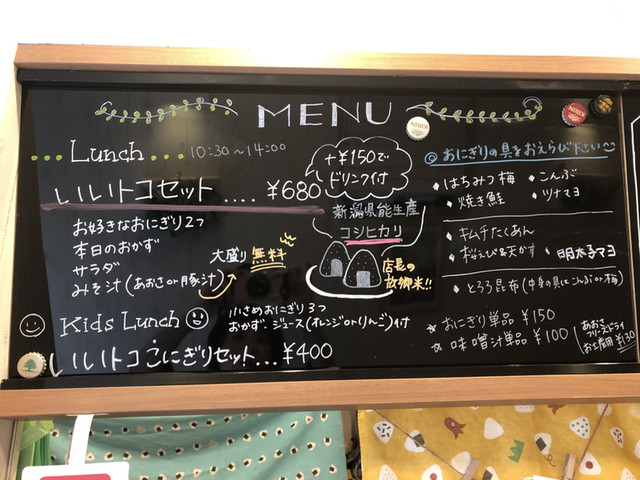 MENU
Lunch 10:30~14:00
いいトコセット....¥680
+¥150で
ドリンク付
お好きなおにぎり2つ
本日のおかず
サラダ
みそ汁(あおさor豚汁)
大盛り無料
新潟県能生産
コシヒカリ
店長の
故郷米!!
Kids Lunch
小さめおにぎり3つ
おかず、ジュース(オレンジorりんご)付
いいトコこにぎりセット...¥400
◎おにぎりの具をおえらび下さい
・はちみつ梅
・こんぶ
・焼き鮭
・ツナマヨ
・キムチたくあん
・桜えび&天かす
・明太子マヨ
・とろろ昆布(中身の具はこんぶor梅)
☆おにぎり単品 ¥150
☆味噌汁単品 ¥100
あおさ
フリーズドライ
お土産用 ¥130